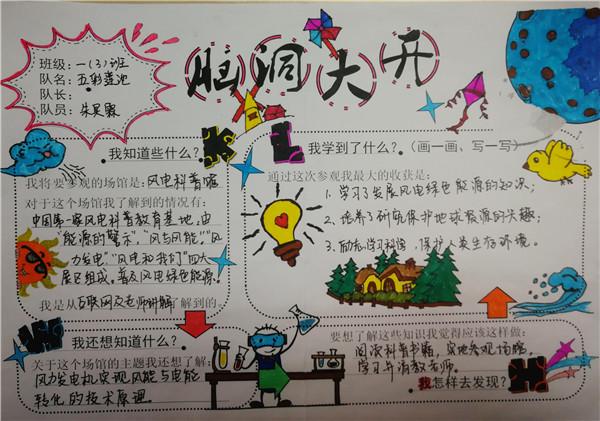 脑洞大开
班级:一(3)班
队名:五彩莲池
队长:
队员:朱昊霖
我知道些什么?
我将要参观的场馆是:风电科普馆
对于这个场馆我了解到的情况有:
中国第一家风电科普教育基地,由
"能源的警示""风与风能""风
力发电""风电和我们"四大
展区组成。普及风电绿色能源。
我是从互联网及老师讲解了解到的。
我学到了什么?(画一画、写一写)
通过这次参观我最大的收获是:
1. 学习了发展风电绿色能源的知识;
2. 培养了研究保护地球资源的兴趣;
3. 励志学习科学,保护人类生存环境。
我还想知道什么?
关于这个场馆的主题我还想了解:
风力发电机实现风能与电能
转化的技术原理
要想了解这些知识我觉得应该这样做:
阅读科普书籍,实地参观场馆,
学习并请教老师。
我怎样去发现?